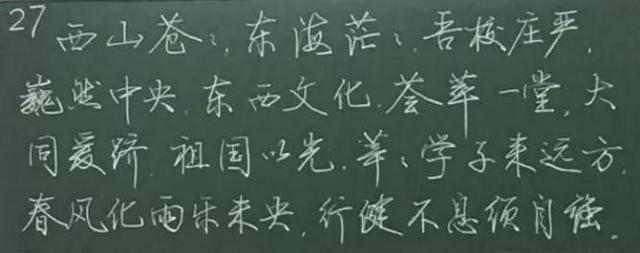 27 西山苍々,东海茫々.吾校庄严,
巍然中央.东西文化.荟萃一堂,大
同爰跻.祖国以光.莘々学子来远方.
春风化雨乐未央,行健不息须自强.